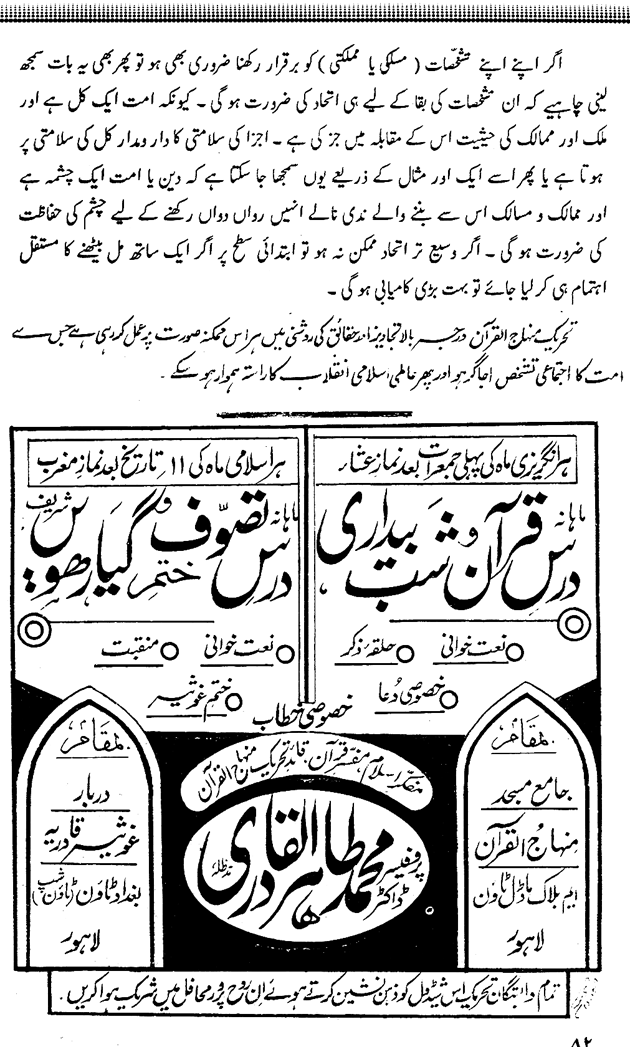 اگر اپنے اپنے تشخّصات ( مسلکی یا مملکتی ) کو برقرار رکھنا ضروری بھی ہو تو پھر بھی یہ بات سمجھ
لینی چاہیے کہ ان تشخصات کی بقا کے لیے ہی اتحاد کی ضرورت ہو گی ۔ کیونکہ امت ایک کل ہے اور
ملک اور ممالک کی حیثیت اس کے مقابلہ میں جز کی ہے ۔ اجزا کی سلامتی کا دار و مدار کل کی سلامتی پر
ہوتا ہے یا پھر اسے ایک اور مثال کے ذریعے یوں سمجھا جا سکتا ہے کہ دین یا امت ایک چشمہ ہے
اور ممالک و مسالک اس سے بننے والے ندی نالے انہیں رواں دواں رکھنے کے لیے چشم کی حفاظت
کی ضرورت ہو گی ۔ اگر وسیع تر اتحاد ممکن نہ ہو تو ابتدائی سطح پر اگر ایک ساتھ مل بیٹھنے کا مستقل
اہتمام ہی کر لیا جائے تو بہت بڑی کامیابی ہو گی ۔
تحریک منہاج القرآن درجہ بالا تجاویز اور حقائق کی روشنی میں ہر اس ممکنہ صورت پر عمل کر رہی ہے جس سے
امت کا اجتماعی تشخص اجاگر ہو اور پھر عالمی اسلامی انقلاب کا راستہ ہموار ہو سکے ۔
ہر انگریزی ماہ کی پہلی جمعرات بعد نماز عشار
ماہانہ
درس قرآن و شب بیداری
نعت خوانی
حلقہ ذکر
خصوصی دُعا
ہر اسلامی ماہ کی ۱۱ تاریخ بعد نماز مغرب
ماہانہ
درس تصوّف و ختم گیارھویں شریف
نعت خوانی
منقبت
ختم غوثیہ
خصوصی خطاب
مفکر اسلام مفسر قرآن قائد تحریک منہاج القرآن
پروفیسر ڈاکٹر محمد طاہر القادری مدظلہ
بمقام
جامع مسجد
منہاج القرآن
ایم بلاک ماڈل ٹاؤن
لاہور
بمقام
دربار
غوثیہ قادریہ
بغداد ٹاؤن (ٹاؤن شپ)
لاہور
تمام وابستگان تحریک اس شیڈول کو ذہن نشین کرتے ہوئے ان روح پرور محافل میں شریک ہوا کریں ۔
۸۲